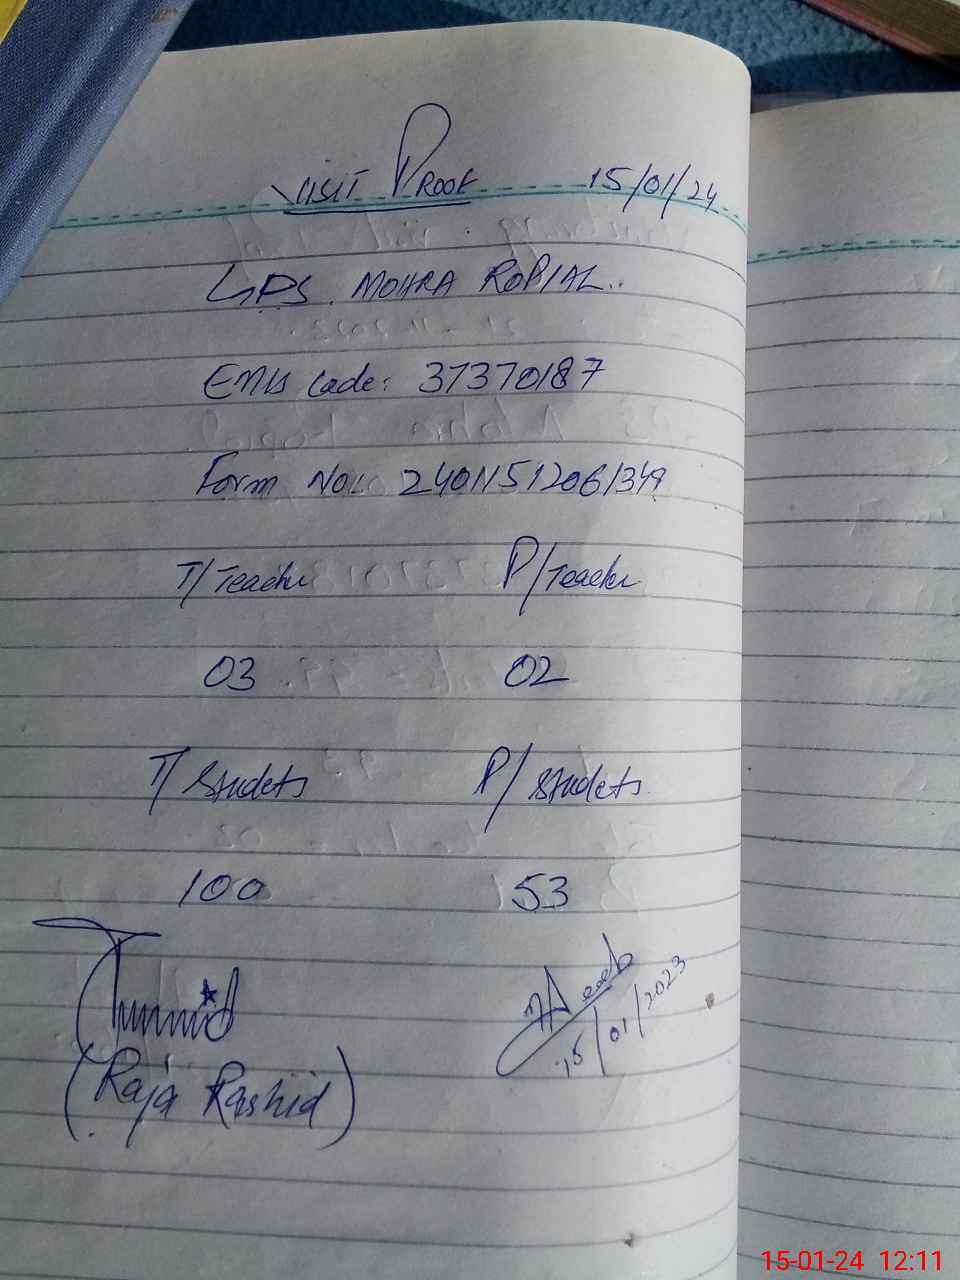 Visit Proof 15/01/24
GPS. MOHRA ROPIAL..
EMIS Code: 37370187
Form No: 24011512061349
T/Teacher P/Teacher
03 02
T/Studets P/Studets
100 53
15/01/2023
(Raja Rashid)
15-01-24 12:11